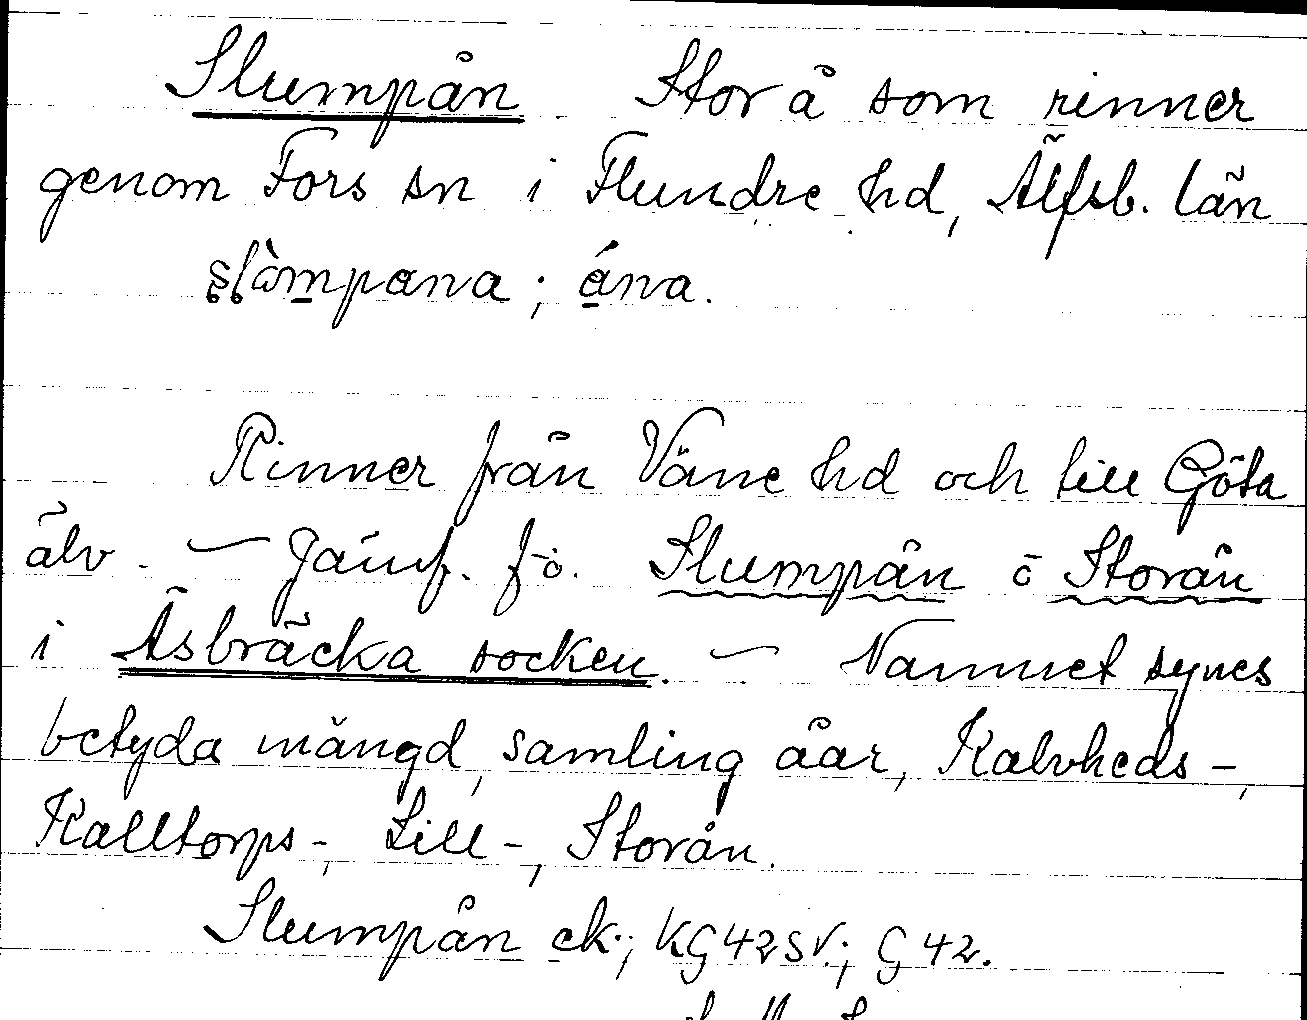 Slumpån Stor å som rinner
genom Fors sn i Flundre hd, Älfsb. län
slàmpana; ána.
Rinner från Väne hd och till Göta
älv. — Jämf. fö. Slumpån o Storån
i Åsbräcka socken. — Namnet synes
betyda mängd, samling åar, Kalvheds-,
Kalltorps-, Lill-, Storån.
Slumpån ek.; KG42SV.; G42.